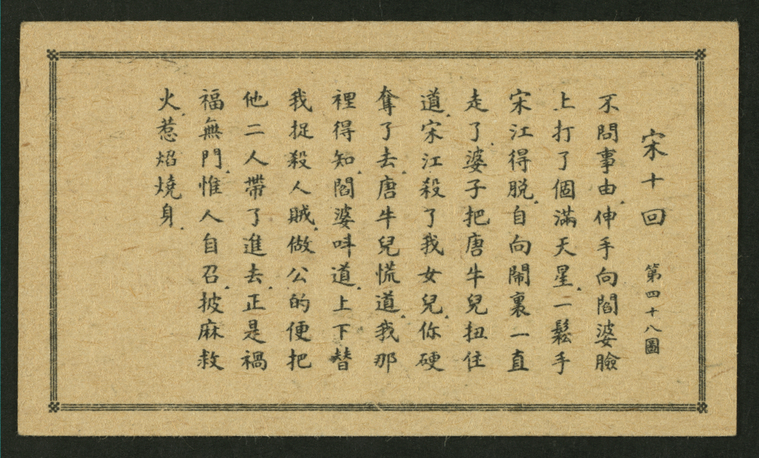 宋十回 第四十八圖
不問事由.伸手向閻婆臉
上打了個滿天星.二鬆手
宋江得脫.自向鬧裏一直
走了.婆子把唐牛兒扭住
道.宋江殺了我女兒.你硬
奪了去.唐牛兒慌道.我那
裡得知.閻婆呌道.上下替
我捉殺人賊.做公的便把
他二人帶了進去.正是禍
福無門.惟人自召.披麻救
火.惹焰燒身.